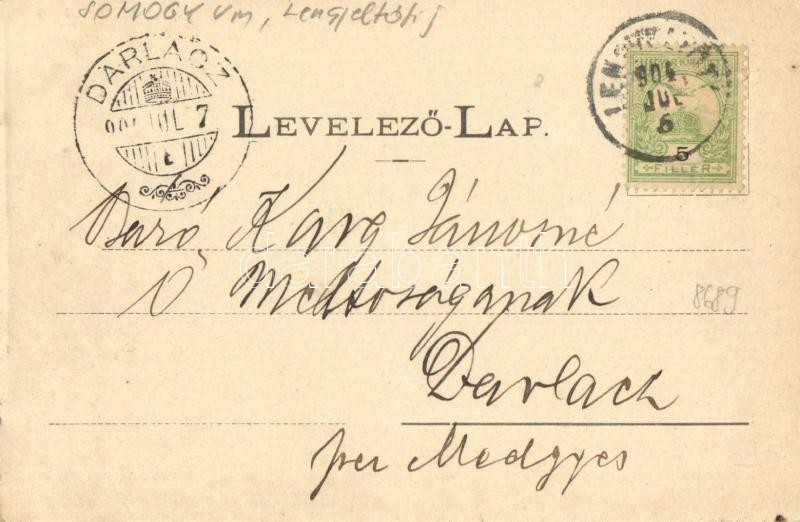 SOMOGY Vm, Lengyeltóti
DARLACZ
904 JUL 7
LEVELEZŐ-LAP.
904
JUL
6
5
FILLÉR
Báró Karg Jánosné
Ő Méltóságának
8689
Darlacz
per Medgyes
darabanth